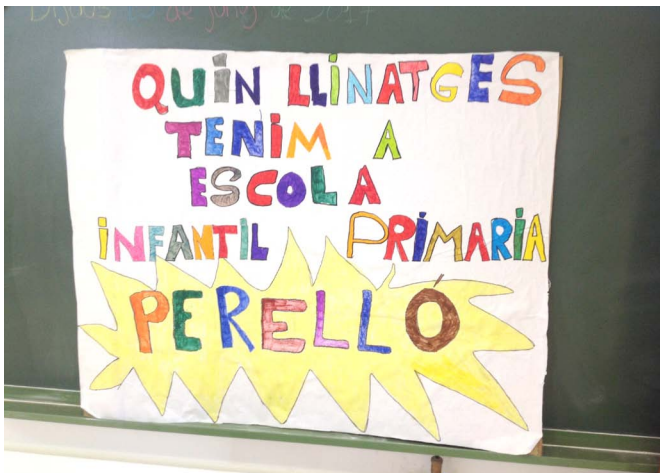 Dijous de juny de 2017
QUiN LLiNATGES
TENiM A
ESCOLA
iNFANTiL PRiMARiA
PERELLÓ